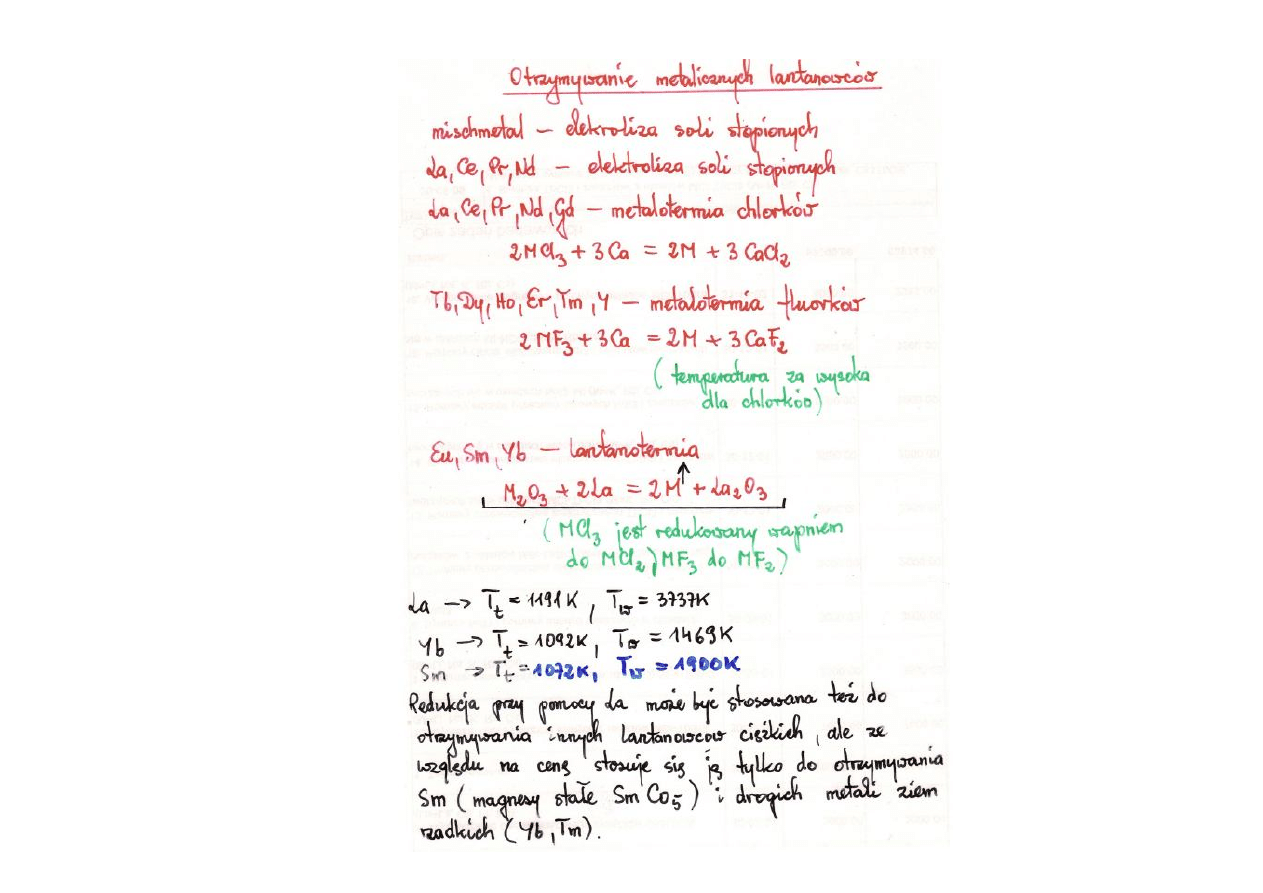 Otrzymywanie metalicznych lantanowców
mischmetal – elekroliza soli stopionych
La, Ce, Pr, Nd – elektroliza soli stopionych
La, Ce, Pr, Nd, Gd – metalotermia chlorków
2MCl₃ + 3Ca = 2M + 3CaCl₂
Tb, Dy, Ho, Er, Tm, Y – metalotermia fluorków
2MF₃ + 3Ca = 2M + 3CaF₂
(temperatura za wysoka
dla chlorków)
Eu, Sm, Yb – lantanotermia
M₂O₃ + 2La = 2M↑ + La₂O₃
(MCl₃ jest redukowany wapniem
do MCl₂, MF₃ do MF₂)
La –> Tt = 1191K, Tw = 3737K
Yb –> Tt = 1092K, Tw = 1469K
Sm –> Tt = 1072K, Tw = 1900K
Redukcja przy pomocy La może być stosowana też do
otrzymywania innych lantanowców ciężkich, ale ze
względu na cenę stosuje się ją tylko do otrzymywania
Sm (magnesy stałe SmCo₅) i drogich metali ziem
rzadkich (Yb, Tm).